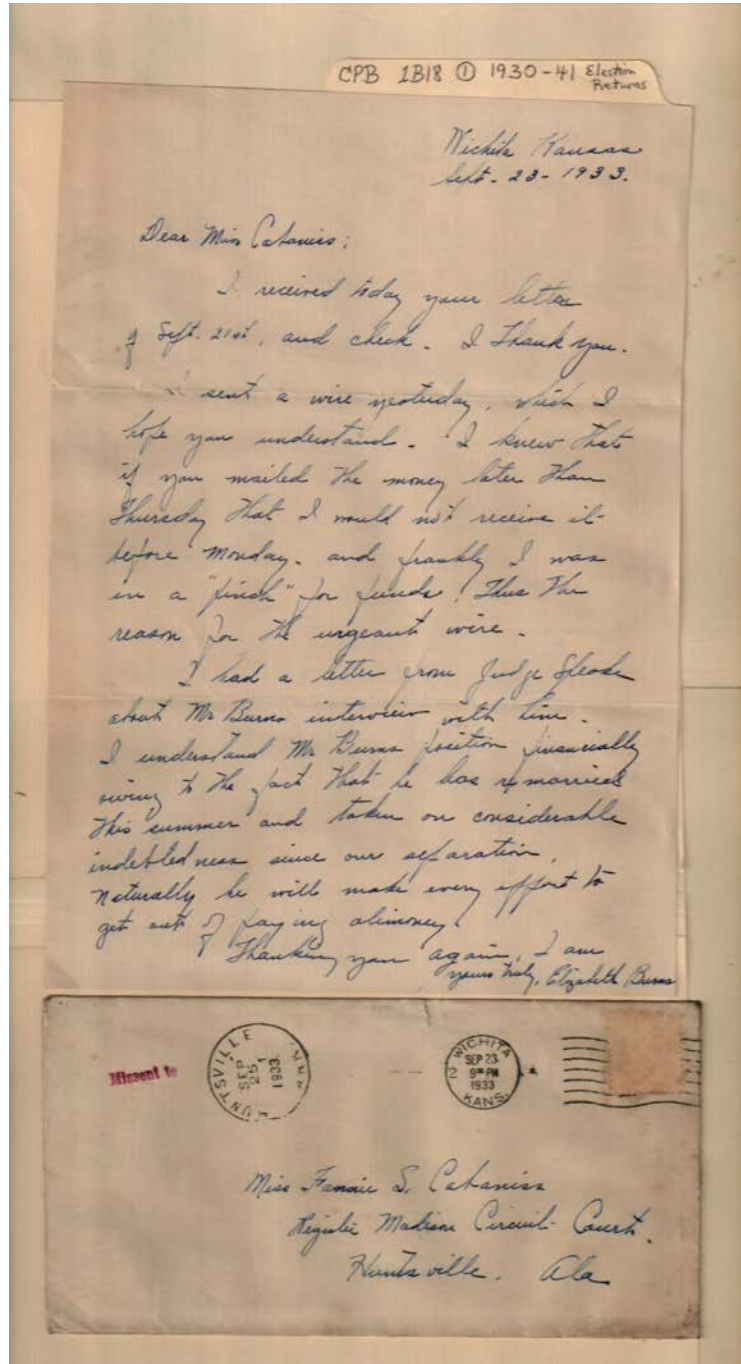 CPB 1B18 ① 1930-41 Election
Returns
Wichita Kansas
Sept. 23 - 1933.
Dear Miss Cabaniss;
I received today your letter
of Sept. 21st, and check. I Thank you.
I sent a wire yesterday, which I
hope you understand. I knew that
if you mailed the money later than
Thursday that I would not receive it
before Monday. and frankly I was
in a "pinch" for funds. Thus the
reason for the urgeant wire.
I had a letter from Judge
about Mr Burns interview with him.
I understand Mr Burns position financially
owing to the fact that he has remarried
this summer and taken on considerable
indebtedness since our separation.
Naturally he will make every effort to
get out of paying alimoney.
Thanking you again, I am
yours truly, Elizabeth Burns
Missent to
HUNTSVILLE
SEP
25
1933
WICHITA
SEP 23
9 PM
1933
KANS.
2
Miss Fannie S. Cabaniss
Register Madison Circuit Court.
Huntsville. Ala